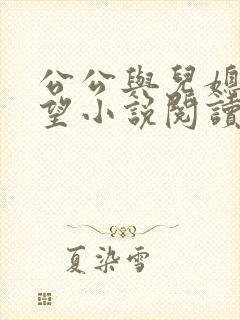 公公與兒媳
望小說閱讀
夏染雪